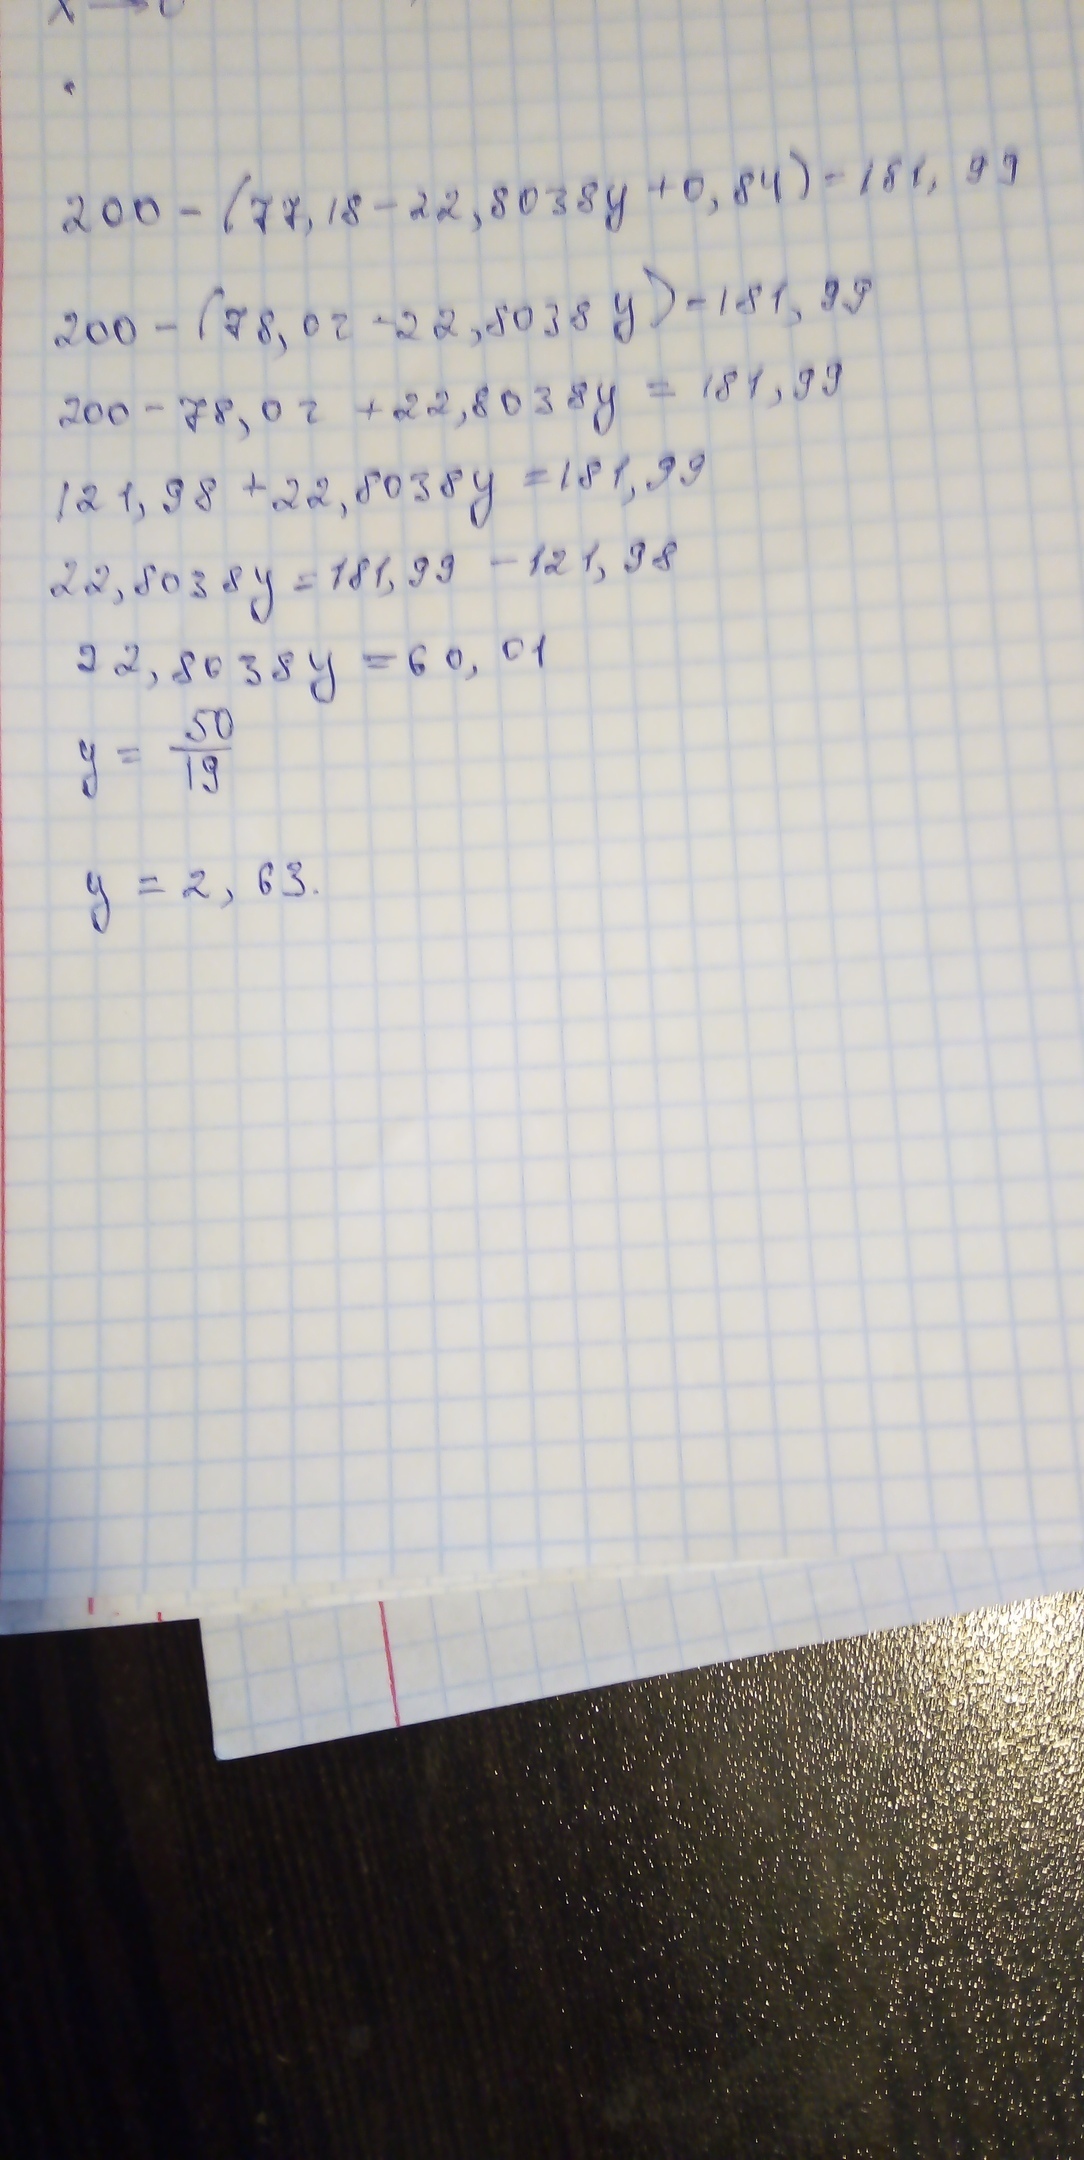 200-(77,18-22,8038y+0,84)=181,99
200-(78,02-22,8038y)=181,99
200-78,02+22,8038y=181,99
121,98+22,8038y=181,99
22,8038y=181,99-121,98
22,8038y=60,01
y=50/19
y=2,63.